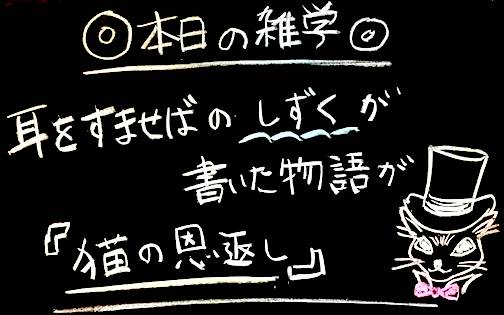 ◎本日の雑学◎
耳をすませばのしずくが
書いた物語が
『猫の恩返し』